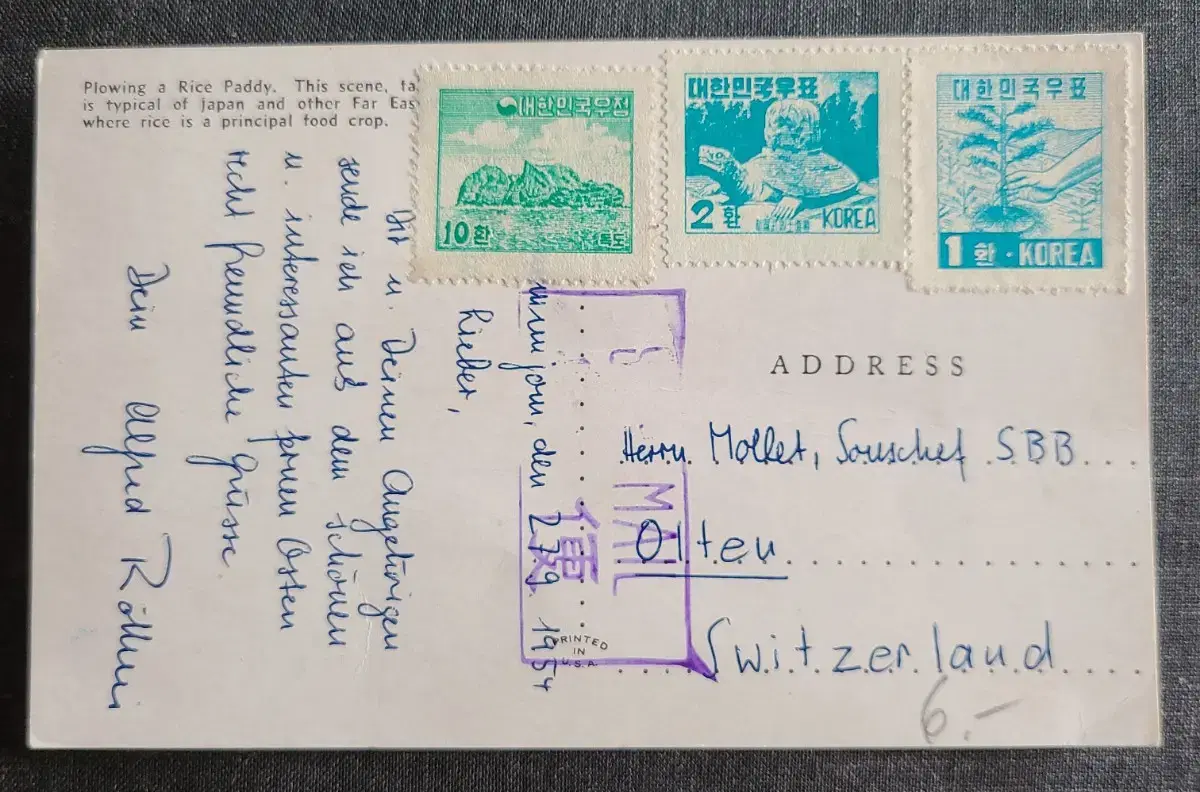 Plowing a Rice Paddy. This scene, ta
is typical of Japan and other Far Eas
where rice is a principal food crop.
대한민국우정
10환
독도
대한민국우표
2환 KOREA
대한민국우표
1환·KOREA
ADDRESS
Herrn Mollet, Souschef SBB
Olten
Switzerland
6.-
MAIL
PRINTED
IN
U.S.A.
munjom, den 27.9.1954
Lieber,
Dir u. Deinen Angehörigen
sende ich aus dem schönen
u. interessanten fernen Osten
recht freundliche Grüsse.
Dein Alfred